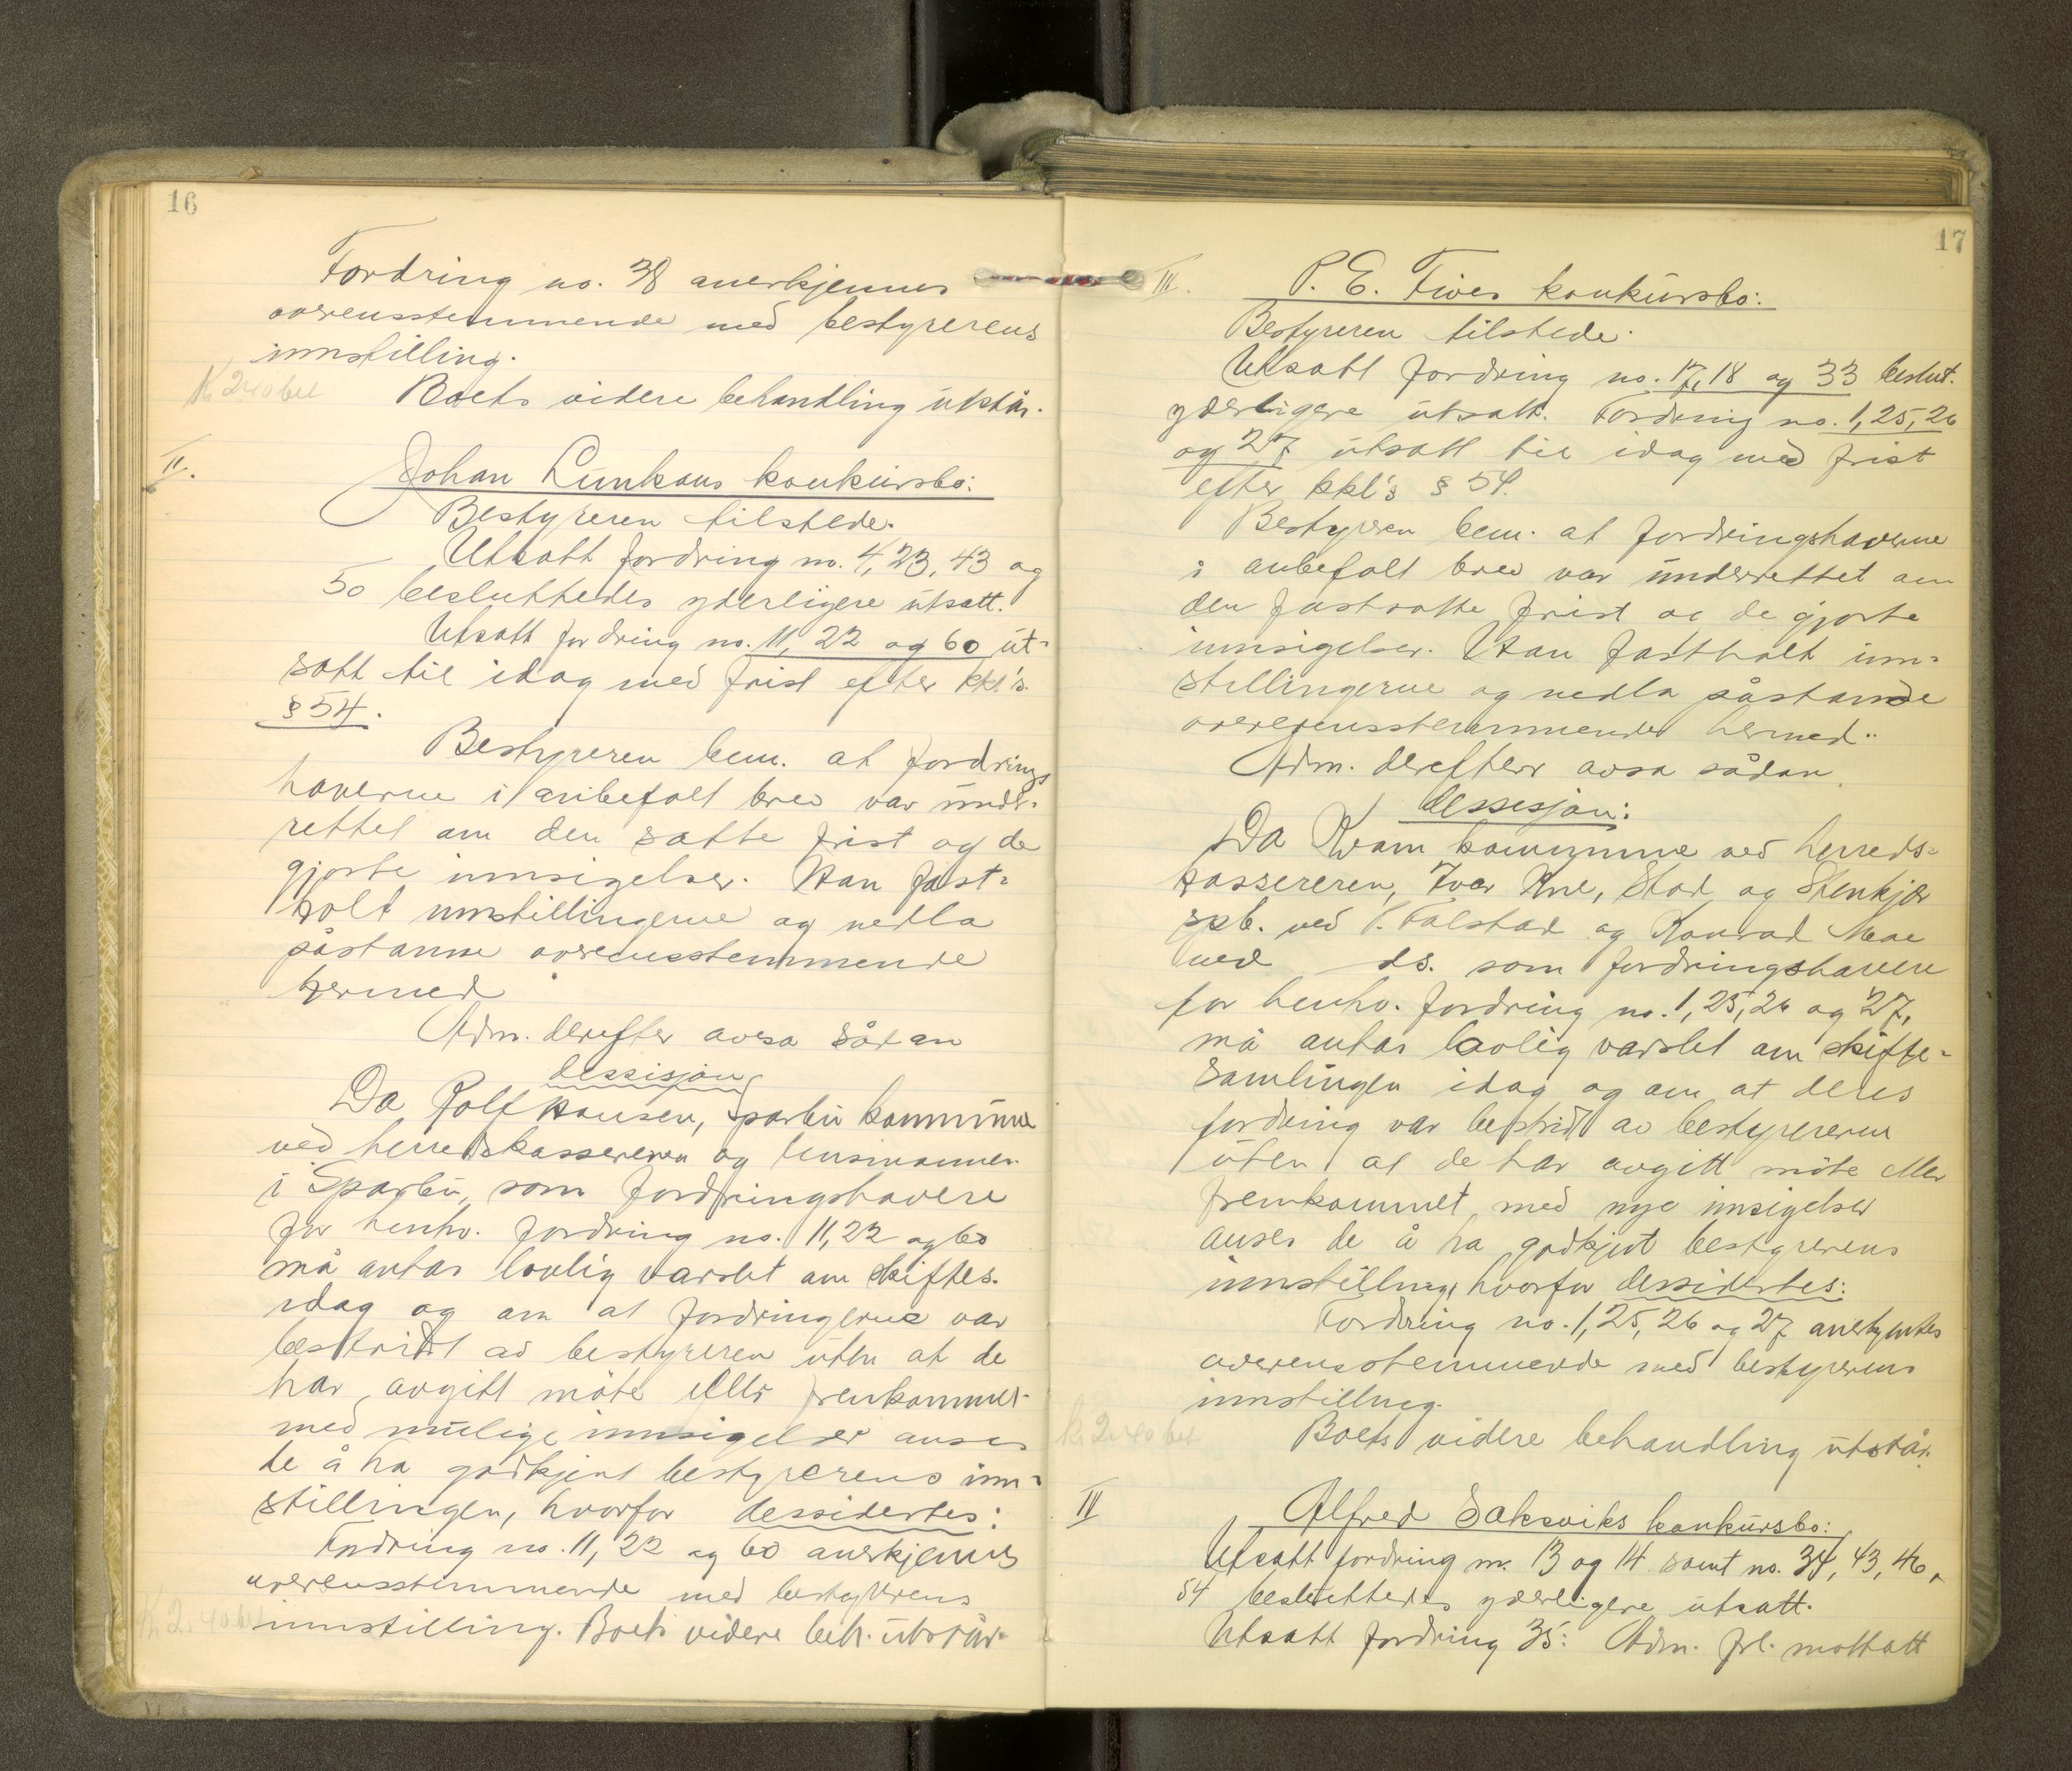 16
Fordring no. 38 anerkjennes
overensstemmende med bestyrerens
innstilling.
Boets videre behandling utstår.
k 2.40 bet
II.
Johan Lunkans konkursbo:
Bestyreren tilstede.
Utsatt fordring no. 4, 23, 43 og
50 besluttedes yderligere utsatt.
Utsatt fordring no. 11, 22 og 60 ut-
satt til idag med frist efter kkl's
§ 54.
Bestyreren bem. at fordrings
haverne i anbefalt brev var under-
rettet om den satte frist og de
gjorte innsigelser. Han fast-
holt innstillingerne og nedla
påstanne overensstemmende
hermed
Adm. derefter avsa sådan
dessisjon
Da Rolf Hansen, Sparbu kommune
ved herredskassereren og lensmannen
i Sparbu, som fordringshavere
for henhv. fordring no. 11, 22 og 60
må antas lovlig varslet om skiftes.
idag og om at fordringerne var
bestridt av bestyreren uten at de
har avgitt møte eller fremkommet
med mulige innsigelser anses
de å ha godkjent bestyrerens inn-
stillingen, hvorfor dessidertes:
Fordring no. 11, 22 og 60 anerkjennes
overensstemmende med bestyrerens
innstilling. Boets videre beh. utstår.
k 2.40 bet
17
III.
P. E. Fives konkursbo:
Bestyreren tilstede.
Utsatt fordring no. 17, 18 og 33 beslut.
yderligere utsatt. Fordring no. 1, 25, 26
og 27 utsatt til idag med frist
efter kkl's § 54.
Bestyreren bem. at fordringshaverne
i anbefalt brev var underrettet om
den fastsatte frist og de gjorte
innsigelser. Han fastholt inn-
stillingerne og nedla påstande
overensstemmende hermed.
Adm. derefter avsa sådan
dessisjon:
Da Kvam kommune ved herreds-
kassereren, Ivar Kne, Stod og Stenkjer
spb. ved T. Falstad og Konrad Moe
ved ds. som fordringshavere
for henhv. fordring no. 1, 25, 26 og 27,
må antas lovlig varslet om skifte-
samlingen idag og om at deres
fordring var bestridt av bestyreren
uten at de har avgitt møte eller
fremkommet med nye insigelser
anses de å ha godkjent bestyrerens
innstilling, hvorfor dessidertes:
Fordring no. 1, 25, 26 og 27 anerkjentes
overensstemmende med bestyrerens
innstilling.
Boets videre behandling utstår.
k 2.40 bet
IV
Alfred Saksviks konkursbo:
Utsatt fordring no. 13 og 14 samt no. 34, 43, 46,
54 besluttedes yderligere utsatt.
Utsatt fordring 35: Adm. frl. mottatt